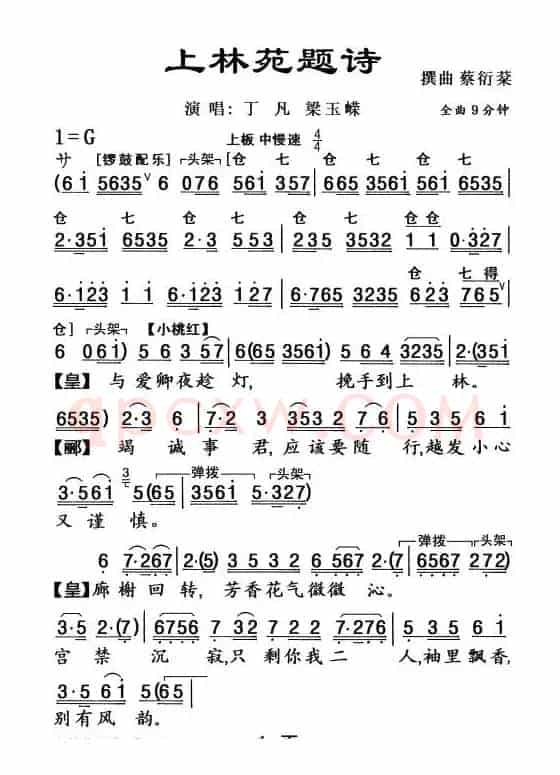 上林苑题诗
撰曲 蔡衍棻
演唱：丁 凡 梁玉嵘
全曲9分钟
1=G 上板 中慢速 4/4
サ [锣鼓配乐] ┌头架┐[仓 七 七 七 仓 七 七 七
(6 i 5635 6 076 561 357 | 665 3561 561 6535 |
仓 七 七 七 仓 七 仓 仓
2·351 6535 2·3 553 | 235 3532 1 1 0·327 |
仓 七 得
6·123 1 1 6·123 127 | 6·765 3235 623 765 |
仓] ┌头架┐ 【小桃红】
6 061) | 5 6 3 57 | 6(65 3561) | 5 6 4 3235 | 2·(351
【皇】 与爱卿夜趁 灯, 挽手到上 林。
6535) 2·3 6 | 7·2 3 353 2 76 | 5 3 5 6 1
【郦】 竭 诚事 君,应该要随 行,越发小心
┌弹拨┐┌头架┐
3·561 5(65 | 3561 5·327)
又谨 慎。
┌弹拨┐ ┌头架┐
6 7·267 | 2·(5) 3532 3532 267 | 2·(7) 6567 272)
【皇】廊榭回 转, 芳香花气微微 沁。
3·5 2·(7) | 6756 732 2327 6 | 5 356 1
宫 禁 沉 寂,只 剩你我二 人,袖里飘香,
3·5 61 5(65
别有风 韵。